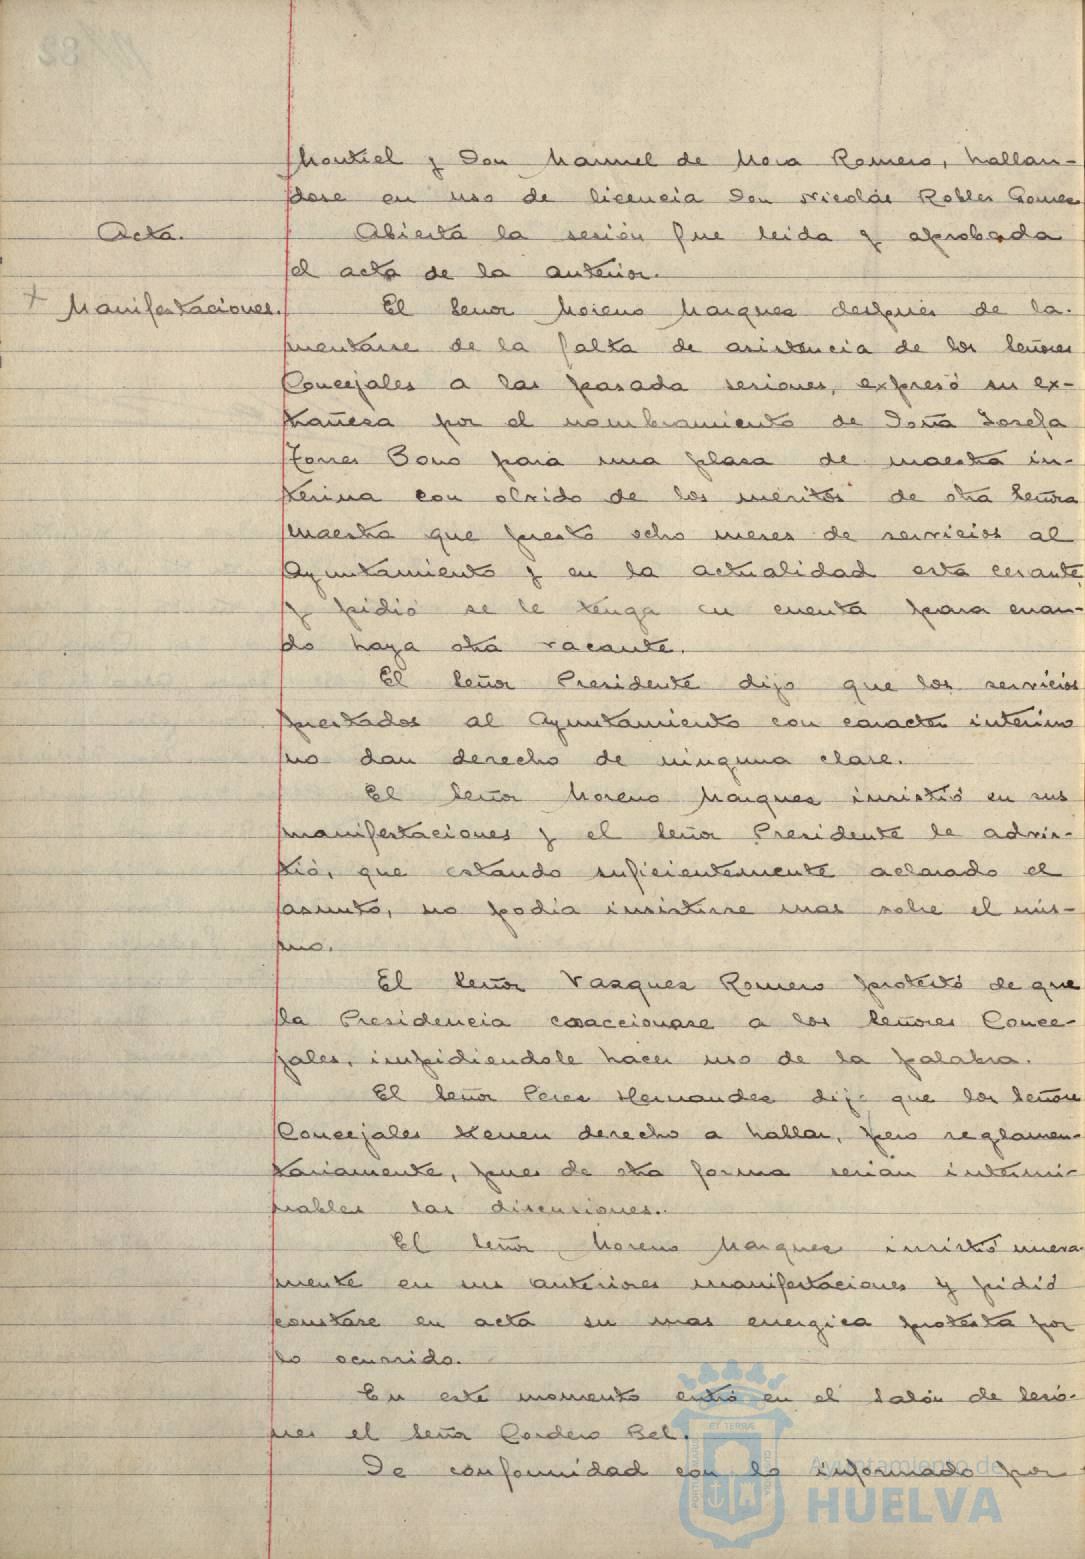 Montiel y Don Manuel de Mora Romero, hallan-
dose en uso de licencia Don Nicolás Robles Gomez
Acta.
Abierta la sesión fue leida y aprobada
el acta de la anterior.
+ Manifestaciones.
El Señor Moreno Marquez después de la-
mentarse de la falta de asistencia de los Señores
Concejales a las pasada sesiones, expresó su ex-
trañeza por el nombramiento de Doña Josefa
Torres Bono para una plaza de maestra in-
terina con olvido de los méritos de otra Señora
maestra que prestó ocho meses de servicios al
Ayuntamiento y en la actualidad está cesante,
y pidió se le tenga en cuenta para cuan-
do haya otra vacante.
El Señor Presidente dijo que los servicios
prestados al Ayuntamiento con caracter interino
no dan derecho de ninguna clase.
El Señor Moreno Marquez insistió en sus
manifestaciones y el Señor Presidente le advir-
tió, que estando suficientemente aclarado el
asunto, no podia insistirse mas sobre el mis-
mo.
El Señor Vazquez Romero protestó de que
la Presidencia coaccionase a los Señores Conce-
jales, impidiendole hacer uso de la palabra.
El Señor Perez Hernandez dijo que los Señores
Concejales tienen derecho a hablar, pero reglamen-
tariamente, pues de otra forma serian intermi-
nables las discusiones.
El Señor Moreno Marquez insistió nueva
mente en sus anteriores manifestaciones y pidió
constase en acta su mas energica protesta por
lo ocurrido.
En este momento entró en el Salón de Sesio-
nes el Señor Cordero Bel.
De conformidad con lo informado por
Ayuntamiento de
HUELVA